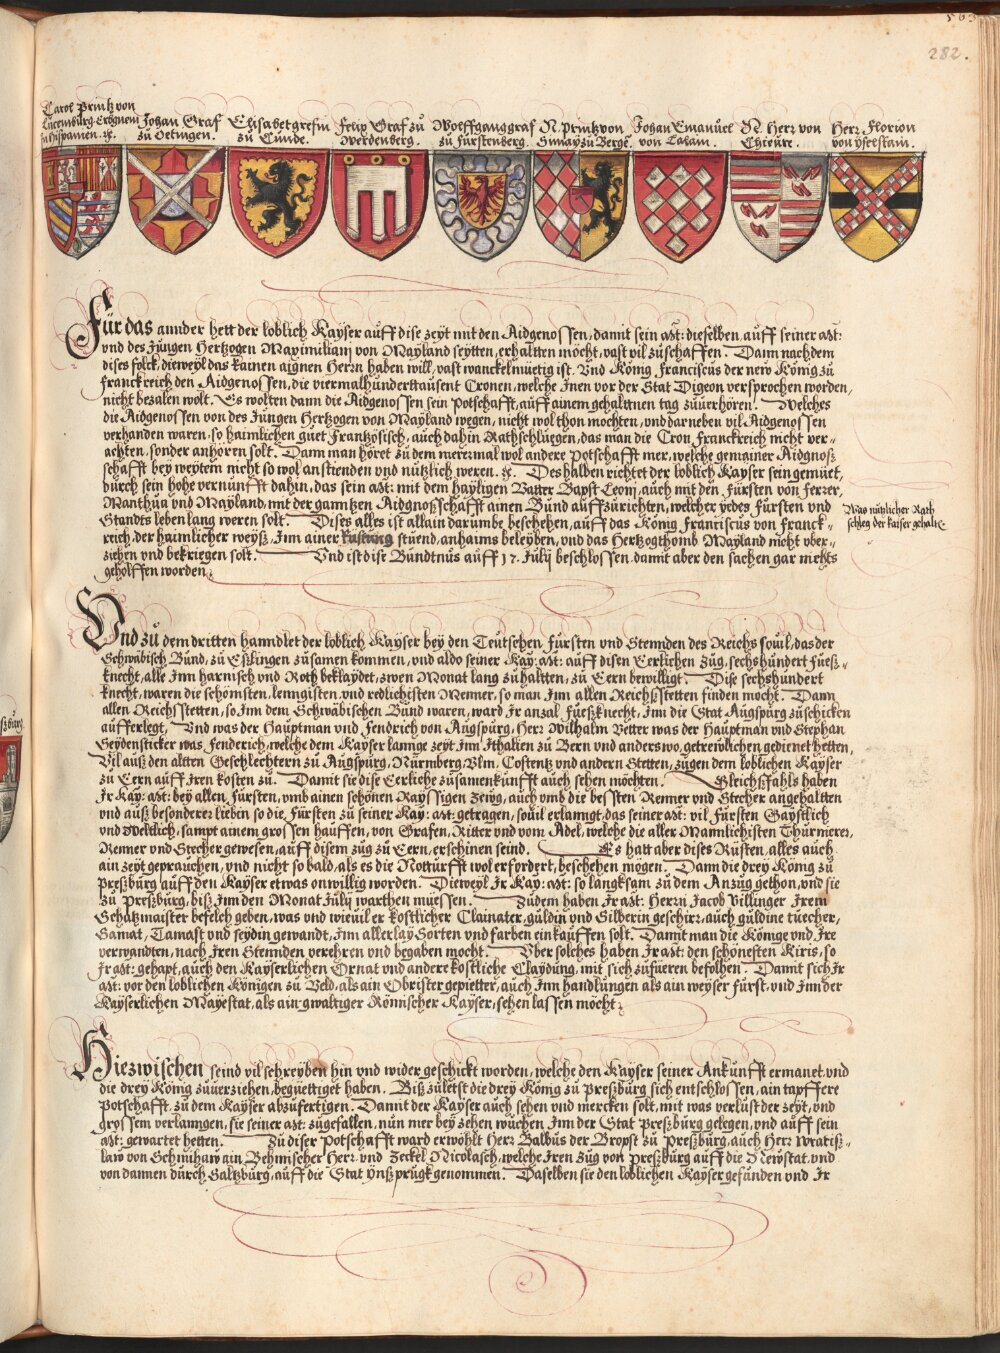 563
282.
Carol Printz von
Lucemburg Erbgnem
in Hispanien. ꝛc.
Johan Graf
zu Oetingen.
Elisabet grefin
zu Cunde.
Felip Graf zu
Werdenberg.
Wolffgang graf
zu Fürstenberg.
N. Printz von
Simay zu Berge.
Johan Emanuel
von Calam.
N. Herr von
Chieure.
Herr Florion
von ÿselstain.
Für das annder hett der loblich Kayser auff dise zeyt mit den Aidgenossen, damit sein Mt: dieselben auff seiner Mt:
vnd des Jungen Hertzogen Maximilians von Mayland seytten, erhaltten möcht, vast vil zuschaffen. Dann nach dem
dises folck, dieweyl das kainen aignen Herrn haben will, vast wanckelmuetig ist. Vnd König Franciscus der new König zu
Franckreich den Aidgenossen, die viermalhunderttausent Cronen, welche Jnen vor der Stat Digeon versprochen worden,
nicht bezalen wolt. Es wolten dann die Aidgenossen sein Potschafft, auff ainem gehalttnen tag zuuerhören. Welches
die Aidgenossen von des Jungen Hertzogen von Mayland wegen, nicht wol thon mochten, vnd darneben vil Aidgenossen
verhanden waren, so haimlichen guet Frantzösisch, auch dahin Rathschluegen, das man die Cron Franckreich nicht ver-
achten, sonder anhören solt. Dann man höret zu dem merermal wol andere Potschafft mer, welche gemainer Aidgnoß-
schafft bey weytem nicht so wol anstienden vnd nützlich weren. ꝛc. Deshalben richtet der loblich Kayser sein gemüet,
durch sein hohe vernunfft dahin, das sein Mt: mit dem hayligen Vatter Bapst Leoni, auch mit den Fürsten von Ferrer,
Manthua vnd Mayland, mit der ganntzen Aidgnoßschafft ainen Bund auffzurichten, welcher yedes Fürsten vnd
Stands leben lang weren solt. Dises alles ist allain darumbe beschehen, auff das König Franciscus von Franck-
reich, der haimlicher weyß, Jnn ainer Rüstung stuend, anhaims beleyben, vnd das Hertzogthomb Mayland nicht vber-
ziehen vnd bekriegen solt. Vnd ist dise Bündtnus auff 17. Julÿ beschlossen, damit aber den sachen gar nichts
geholffen worden.
Was nützlicher Rath
schleg der kaiser gehalt
Vnd zu dem dritten hanndlet der loblich Kayser bey den Teutschen Fürsten vnd Stennden des Reichs souil, das der
Schwäbisch Bund, zu Eßlingen zusamen kommen, vnd aldo seiner Kay: Mt: auff disen Eerlichen Zug, sechshundert Fueß-
knecht, alle Jnn harnisch vnd Roth beklaydet, zwen Monat lang zuhaltten, zu Eern bewilligt. Dise sechshundert
knecht, waren die schönsten, lenngisten vnd redlichisten Menner, so man Jnn allen Reichsstetten finden mocht. Dann
allen Reichsstetten, so Jnn dem Schwäbischen Bund waren, ward Jr anzal Fueßknecht, Jnn die Stat Augspurg zuschicken
aufferlegt, Vnd was der Hauptman vnd Fendrich von Augspurg, Herr Wilhalm Vetter was der Hauptman vnd Stephan
Seydensticker was Fenderich, welche dem Kayser lannge zeyt Jnn Jthalien zu Bern vnd anderswo, getrewlichen gedienet hetten,
Vil auß den altten Geschlechtern zu Augspurg, Nürmberg, Vlm, Costentz vnd andern Stetten, zugen dem loblichen Kayser
zu Eern auff Jren kosten zu. Damit sie dise Eerliche zusamenkunfft auch sehen möchten. Gleichßfahls haben
Jr Kay: Mt: bey allen Fürsten, vmb ainen schönen Raysigen Zewg, auch vmb die besten Renner vnd Stecher angehaltten
vnd auß besonderer liebin so die Fürsten zu seiner Kay: Mt: getragen, souil erlanngt, das seiner Mt: vil Fürsten Gaystlich
vnd Weltlich, sampt ainem grossen hauffen, von Grafen, Ritter vnd vom Adel, welche die aller Mannlichisten Thurnierer,
Renner vnd Stecher gewesen, auff disem zug zu Eern, erschinen seind. Es hatt aber dises Rüsten, alles auch
ain zeyt geprauchen, vnd nicht so bald, als es die Notturfft wol erfordert, beschehen mögen. Dann die drey König zu
Preßburg auff den Kayser etwas onwillig worden. Dieweyl Jr Kay: Mt: so langksam zu dem Anzug gethon, vnd sie
zu Preßburg, biß Jnn den Monat Julÿ warthen muessen. Zudem haben Jr Mt: Herrn Jacob Villinger Jrem
Schatzmaister befelch geben, was vnd wieuil er kostlicher Clainater, guldin vnd Silberin geschirr, auch guldine tuecher,
Samat, Tamast vnd seydin gewandt, Jnn allerlay Sorten vnd farben einkauffen solt. Damit man die Könige vnd Jre
verwandten, nach Jren Stennden verehren vnd begaben mocht. Vber solches haben Jr Mt: den schönesten Kiris, so
Jr Mt: gehapt, auch den Kayserlichen Ornat vnd andere kostliche Claydung, mit sich zufüeren befolhen. Damit sich Jr
Mt: vor den loblichen Königen zu Veld, als ain Obrister gepietter, auch Jnn handlungen als ain weyser Fürst, vnd Jnn der
Kayserlichen Mayestat, als ain gwaltiger Römischer Kayser, sehen lassen möcht.
Hiezwischen seind vil schreyben hin vnd wider geschickt worden, welche den Kayser seiner Ankunfft ermanet, vnd
die drey König zuuerziehen, beguettiget haben. Biß zuletst die drey König zu Preßburg sich entschlossen, ain tapffere
Potschafft, zu dem Kayser abzufertigen. Damit der Kayser auch sehen vnd mercken solt, mit was verlust der zeyt, vnd
grossem verlanngen, sie seiner Mt: zugefallen, nun mer bey zehen wuchen Jnn der Stat Preßburg gelegen, vnd auff sein
Mt: gewartet hetten. Zu diser Potschafft ward erwöhlt Herr Balbus der Bropst zu Preßburg, auch Herr Wratiß-
law von Schwihaw ain Behmischer Herr, vnd Zeckel Nicolasch, welche Jren Zug von Preßburg auff die Newstat, vnd
von dannen durch Saltzburg, auff die Stat Ynßprugk genommen. Daselben sie den loblichen Kayser gefunden vnd Jr